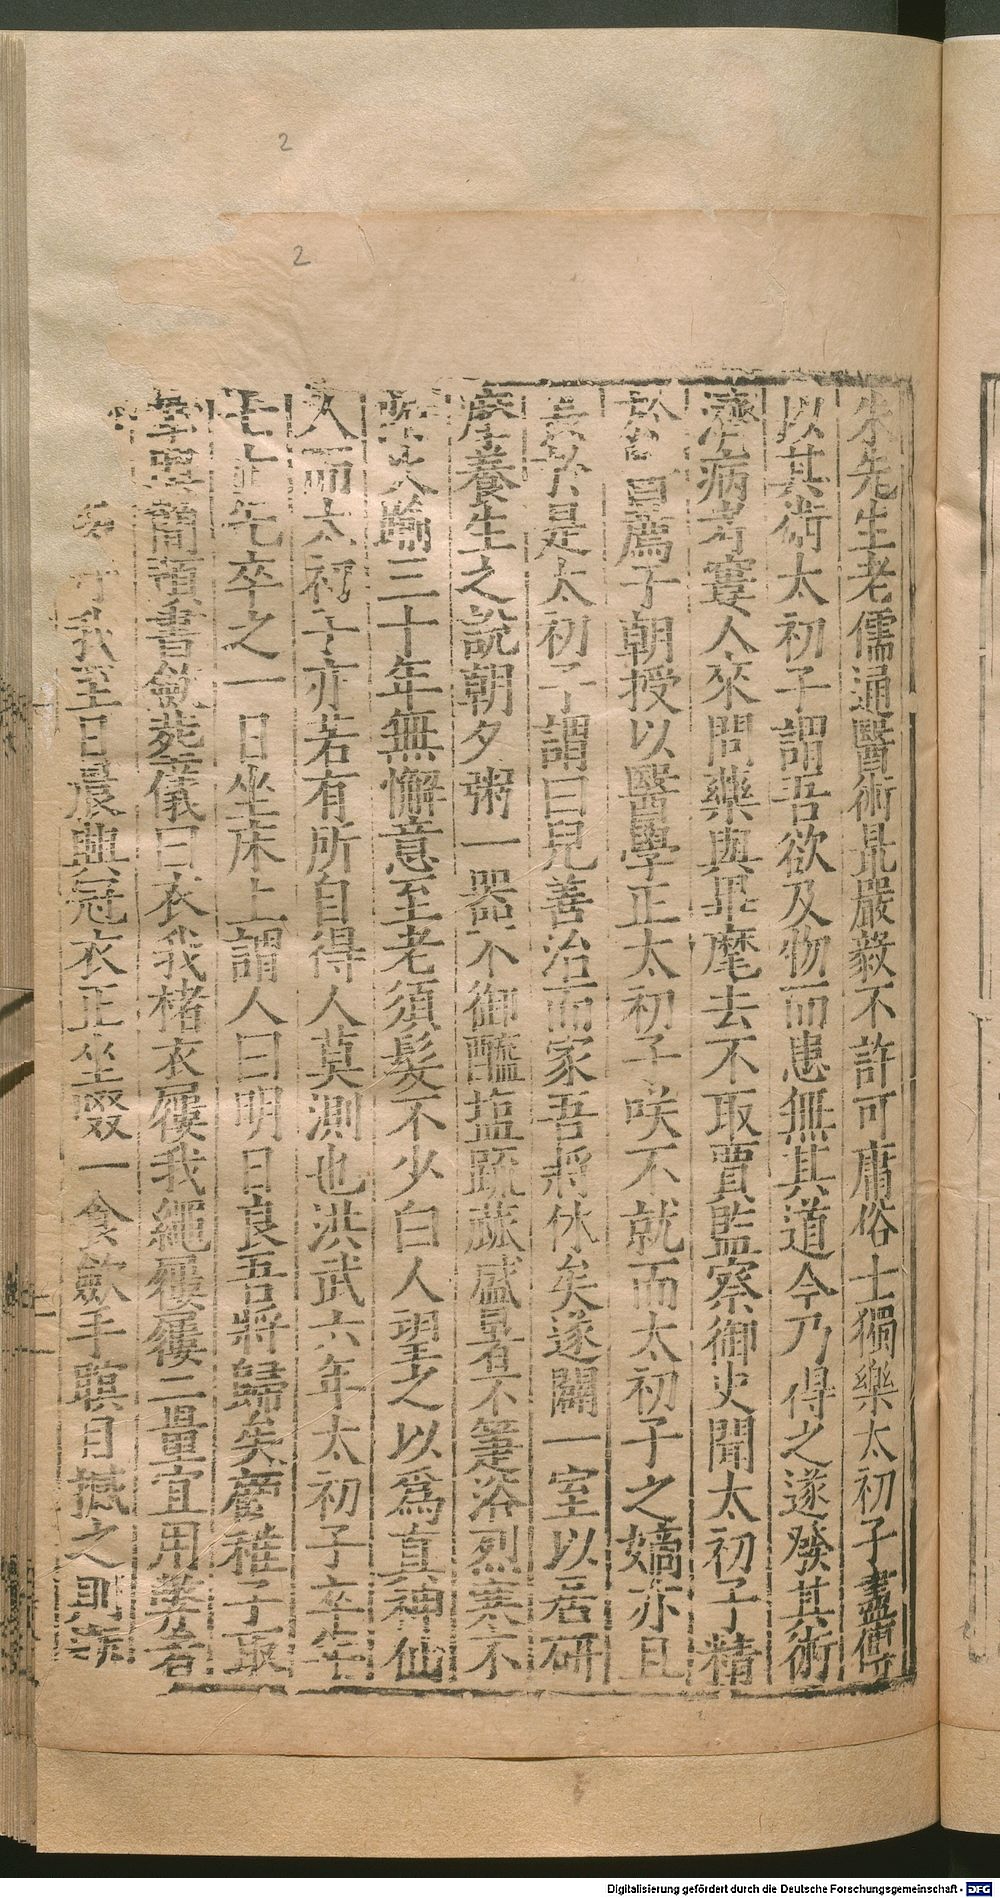 朱先生老儒通醫術最嚴毅不許可庸俗士獨樂太初子盡傳
以其術太初子謂吾欲及物而患無其道今乃得之遂發其術
濟病者窶人來問藥與畢麾去不取賈監察御史聞太初子精
於醫薦于朝授以醫學正太初子咲不就而太初子之嫡亦且
長於是太初子謂曰兒善治而家吾將休矣遂闢一室以居研
摩養生之說朝夕粥一器不御醯塩疏蔬盛暑不箑浴烈寒不
火踰三十年無懈意至老須髮不少白人望之以爲真神仙
人而太初子亦若有所自得人莫測也洪武六年太初子卒年
七十年卒之一日坐床上謂人曰明日良吾將歸矣麾稚子取
筆與簡頓書斂葬儀曰衣我楮衣屨我繩屨屨二量宜用
我至日晨興冠衣正坐啜一食斂手瞑目撼之則
2
2
Digitalisierung gefördert durch die Deutsche Forschungsgemeinschaft - DFG